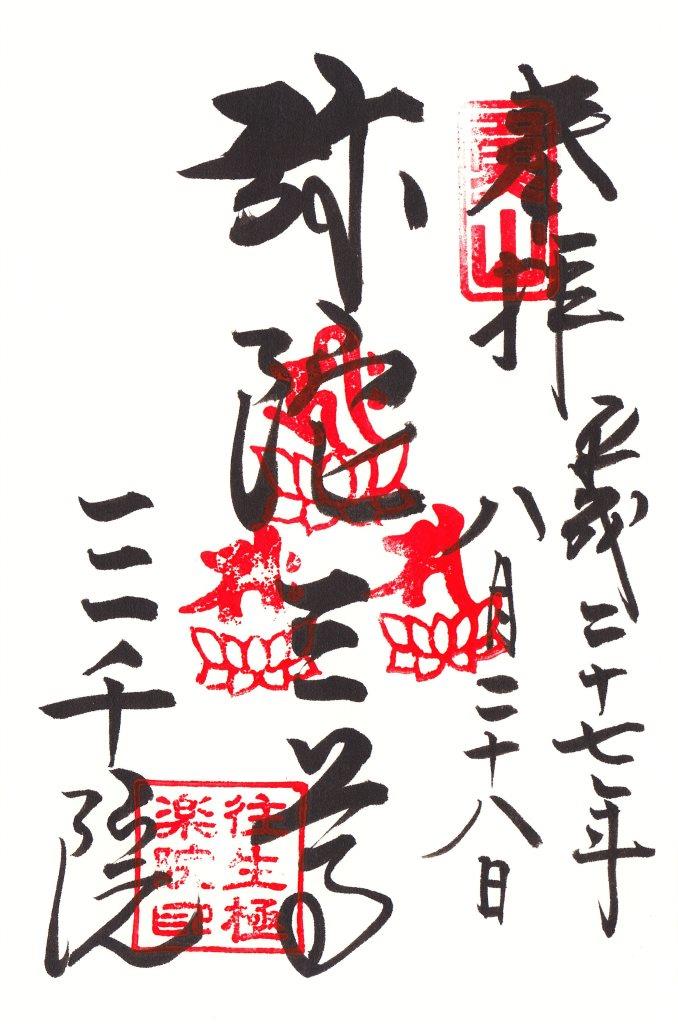 奉拝
魚山
平成二十七年
八月二十八日
弥陀三尊
三千院
往生極
楽院印